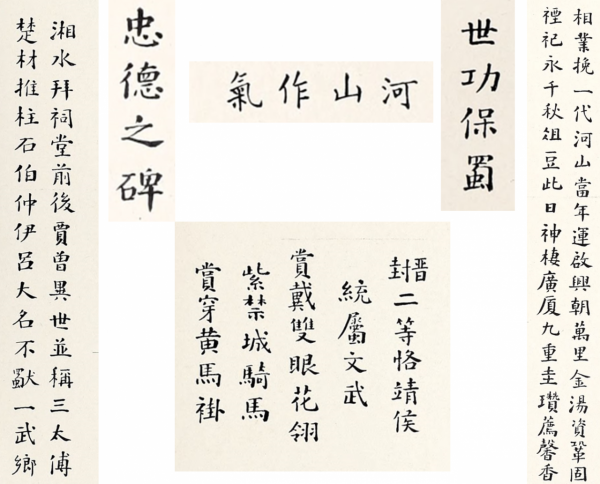 相業挽一代河山當年運啟興朝萬里金湯資鞏固
禋祀永千秋俎豆此日神棲廣厦九重圭瓚薦馨香
世功保蜀
河山作氣
忠德之碑
晋封二等恪靖侯
統屬文武
賞戴雙眼花翎
紫禁城騎馬
賞穿黄馬褂
湘水拜祠堂前後賈曾異世並稱三太傅
楚材推柱石伯仲伊呂大名不獸一武鄉